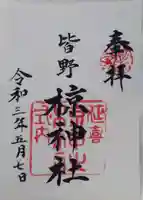 奉拝
皆野
椋神社
令和三年五月七日
延喜
式内